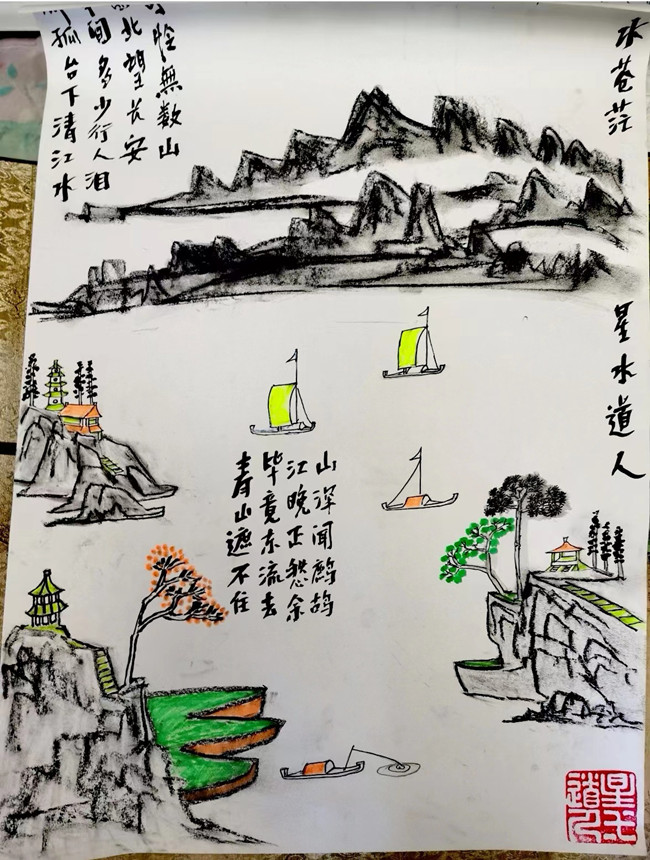 水苍茫
星水道人
怜無数山
北望长安
间多少行人泪
孤台下清江水
山深闻鹧鸪
江晚正愁余
毕竟东流去
青山遮不住
星水
道人